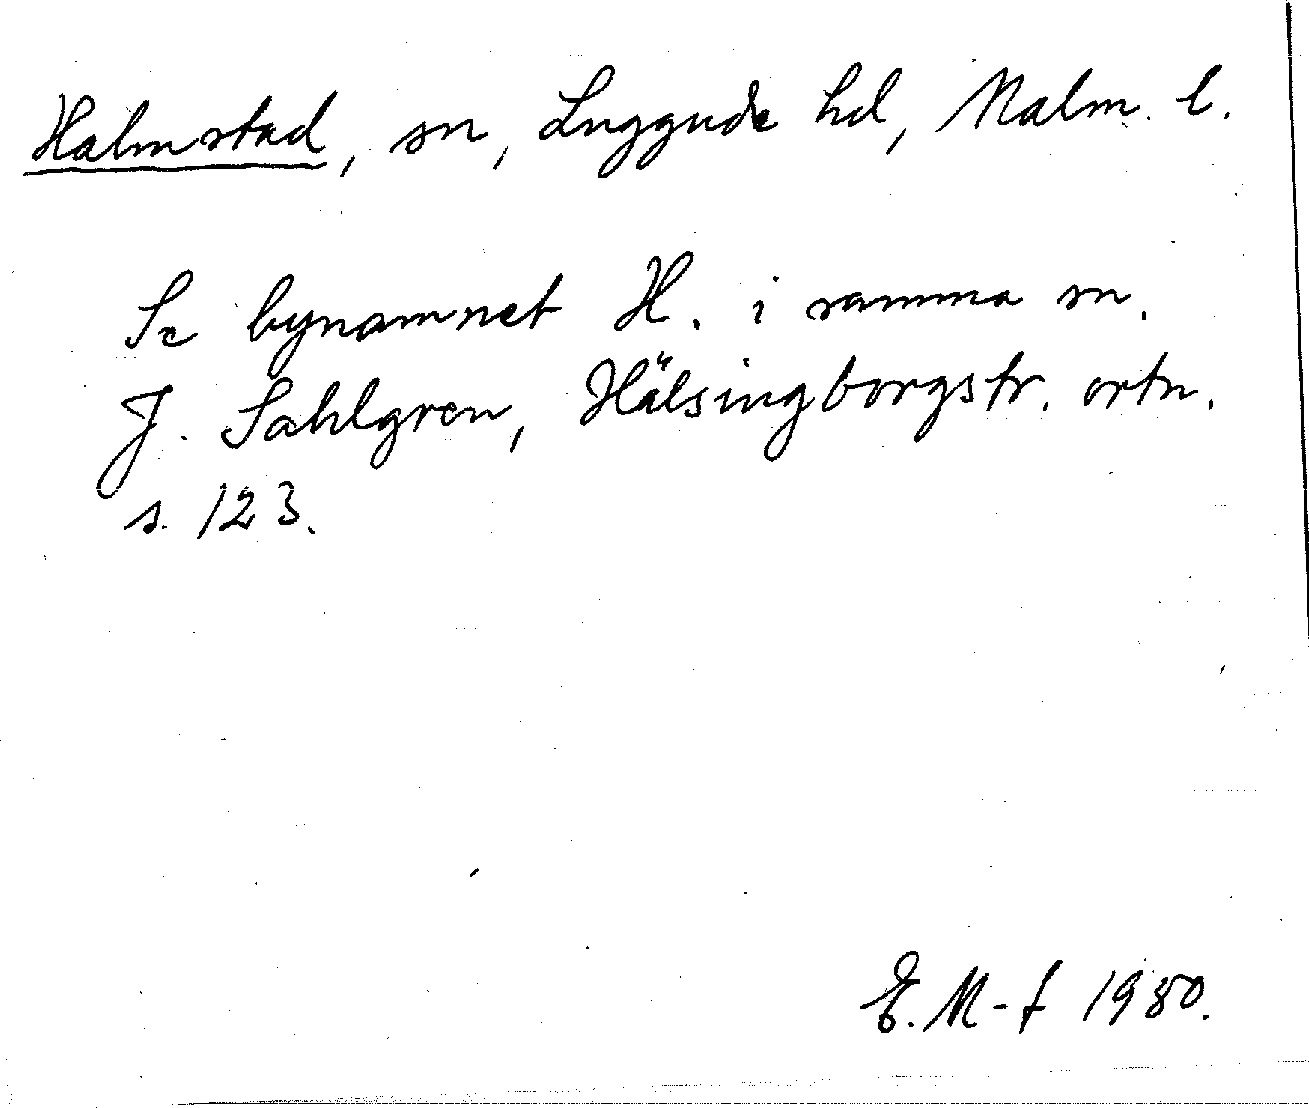 Halmstad, sn, Luggude hd, Malm. l.
Se bynamnet H. i samma sn.
J. Sahlgren, Hälsingborgstr. ortn.
s. 123.
E. M-f 1980.